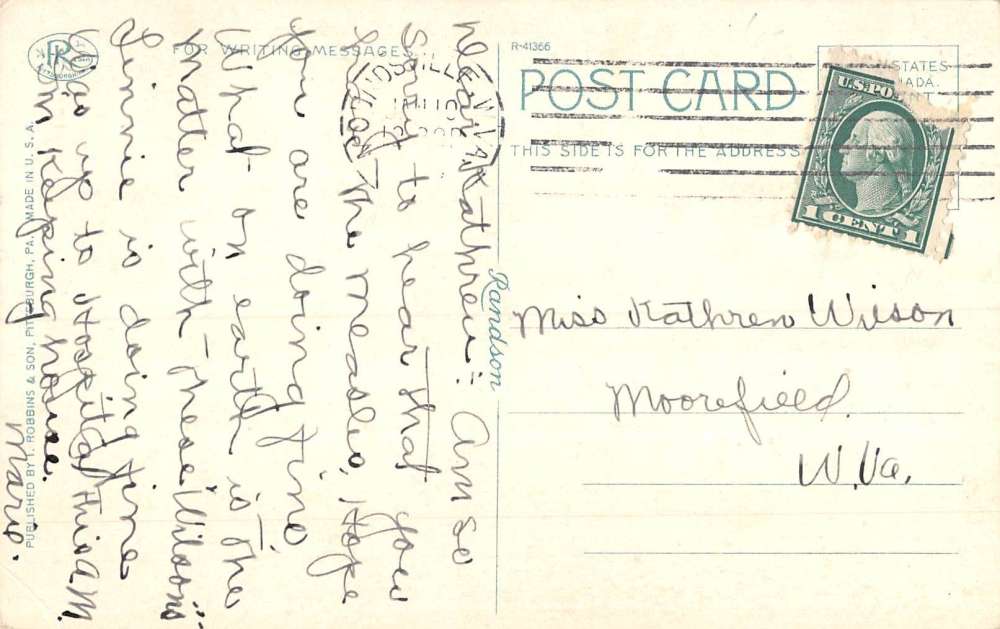 FOR WRITING MESSAGES
R-41366
POST CARD
THIS SIDE IS FOR THE ADDRESS
U.S. PO
1 CENT 1
Dear Kathren:- Am so
sorry to hear that you
have the measles, Hope
you are doing fine.
What on earth is the
matter with these "Wilsons"
Linnie is doing fine
Was up to Hospital this A.M.
Im Keeping house.
Marie.
Miss Kathren Wilson
Moorefield.
W. Va.
Randson
PUBLISHED BY I. ROBBINS & SON, PITTSBURGH, PA. MADE IN U. S. A.